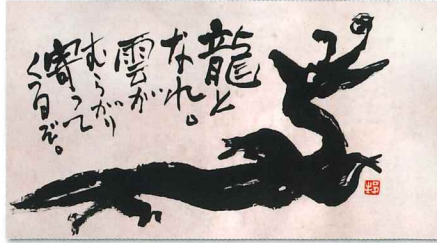 龍と
なれ。
雲が
むらがり
寄って
くるぞ。